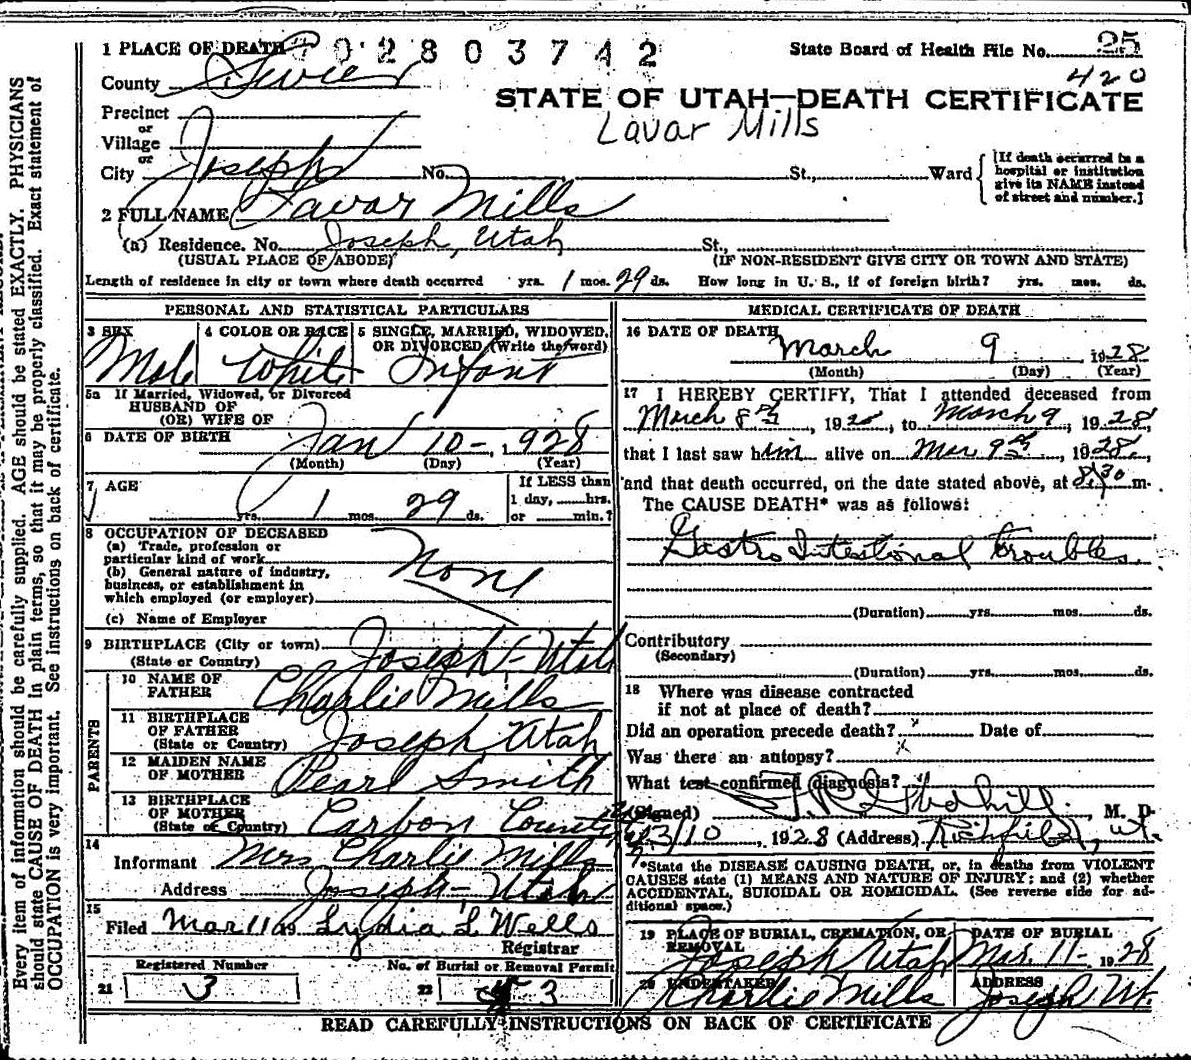 1 PLACE OF DEATH 02803742 State Board of Health File No. 25
County Sevier 420
STATE OF UTAH—DEATH CERTIFICATE
Precinct
or
Village
Lavar Mills
or
City Joseph No. St., Ward
[If death occurred in a
hospital or institution
give its NAME instead
of street and number.]
2 FULL NAME Lavar Mills
(a) Residence. No. Joseph, Utah St.,
(USUAL PLACE OF ABODE) (IF NON-RESIDENT GIVE CITY OR TOWN AND STATE)
Length of residence in city or town where death occurred yrs. 1 mos. 29 ds. How long in U. S., if of foreign birth? yrs. mos. ds.
PERSONAL AND STATISTICAL PARTICULARS
3 SEX 4 COLOR OR RACE 5 SINGLE, MARRIED, WIDOWED,
OR DIVORCED (Write the word)
Male White Infant
5a If Married, Widowed, or Divorced
HUSBAND OF
(OR) WIFE OF
6 DATE OF BIRTH Jan 10-, 1928
(Month) (Day) (Year)
7 AGE If LESS than
1 day, hrs.
yrs. 1 mos. 29 ds. or min.?
8 OCCUPATION OF DECEASED
(a) Trade, profession or
particular kind of work
None
(b) General nature of industry,
business, or establishment in
which employed (or employer)
(c) Name of Employer
9 BIRTHPLACE (City or town) Joseph-Utah
(State or Country)
PARENTS
10 NAME OF
FATHER Charlie Mills
11 BIRTHPLACE
OF FATHER
(State or Country) Joseph Utah
12 MAIDEN NAME
OF MOTHER Pearl Smith
13 BIRTHPLACE
OF MOTHER
(State or Country) Carbon County
14
Informant Mrs Charlie Mills
Address Joseph-Utah
15
Filed Mar 11 Lydia L Wells
Registrar
Registered Number No. of Burial or Removal Permit
21 3 22 3
MEDICAL CERTIFICATE OF DEATH
16 DATE OF DEATH
March 9 1928
(Month) (Day) (Year)
17 I HEREBY CERTIFY, That I attended deceased from
March 8th, 1928, to March 9, 1928,
that I last saw him alive on Mar 9th, 1928,
and that death occurred, on the date stated above, at 8:30 m.
The CAUSE DEATH* was as follows:
Gastro Intestional troubles.
(Duration) yrs. mos. ds.
Contributory
(Secondary)
(Duration) yrs. mos. ds.
18 Where was disease contracted
if not at place of death?
Did an operation precede death? x Date of
Was there an autopsy? x
What test confirmed diagnosis?
(Signed) M. D.
3/10, 1928 (Address) Richfield, Ut.
*State the DISEASE CAUSING DEATH, or, in deaths from VIOLENT
CAUSES state (1) MEANS AND NATURE OF INJURY; and (2) whether
ACCIDENTAL, SUICIDAL OR HOMICIDAL. (See reverse side for ad-
ditional space.)
19 PLACE OF BURIAL, CREMATION, OR
REMOVAL
DATE OF BURIAL
Joseph Utah Mar. 11- 1928
20 UNDERTAKER ADDRESS
Charlie Mills Joseph Ut.
READ CAREFULLY INSTRUCTIONS ON BACK OF CERTIFICATE
Every item of information should be carefully supplied. AGE should be stated EXACTLY. PHYSICIANS
should state CAUSE OF DEATH in plain terms, so that it may be properly classified. Exact statement of
OCCUPATION is very important. See instructions on back of certificate.